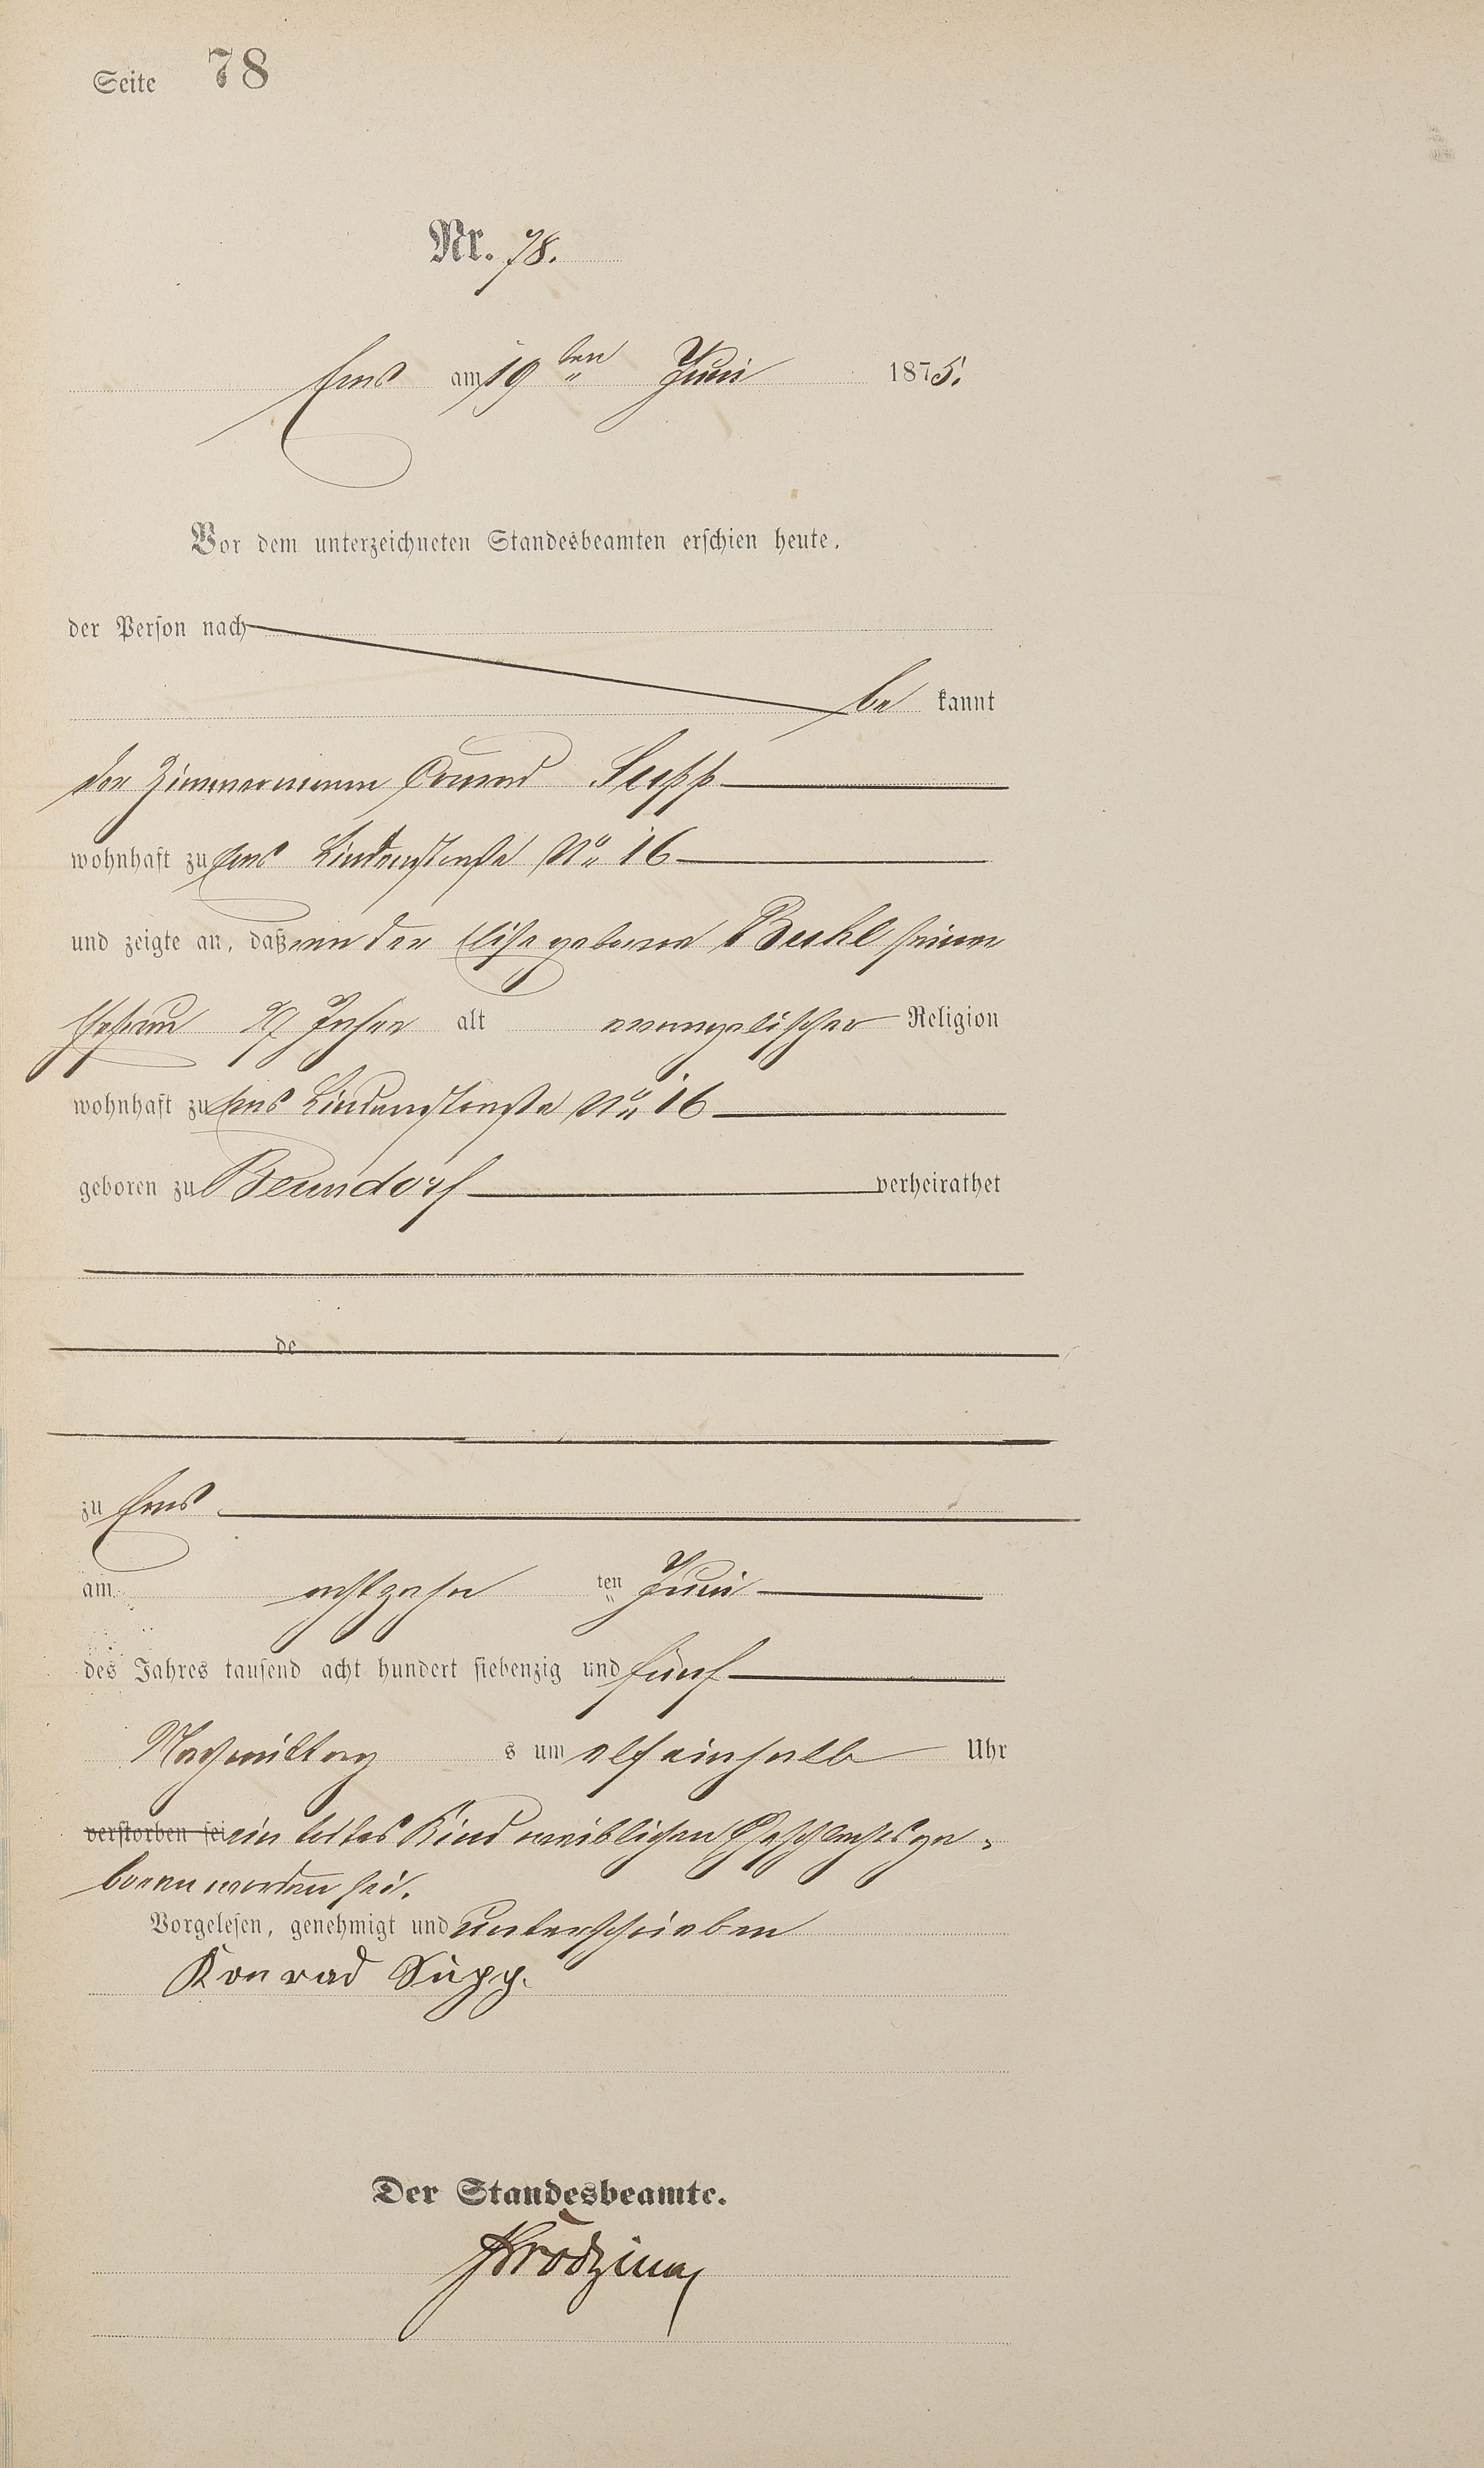 Seite 78
Nr. 78.
Ems am 19ten Juni 1875.
Vor dem unterzeichneten Standesbeamten erschien heute,
der Person nach
be kannt
der Zimmermann Conrad Supp
wohnhaft zu Ems Lindenstraße No. 16
und zeigte an, daß von der Elise geborne Buhl seiner
Ehefrau Jahre alt evangelischer Religion
wohnhaft zu Ems Lindenstraße No. 16
geboren zu Benndorf verheirathet
de
zu Ems
am achtzehn ten Juni
des Jahres tausend acht hundert siebenzig und fünf
Nachmittag s um elf einhalb Uhr
verstorben sei ein todtes Kind weiblichen Geschlechts ge-
boren worden sei.
Vorgelesen, genehmigt und unterschrieben
Konrad Supp.
Der Standesbeamte.